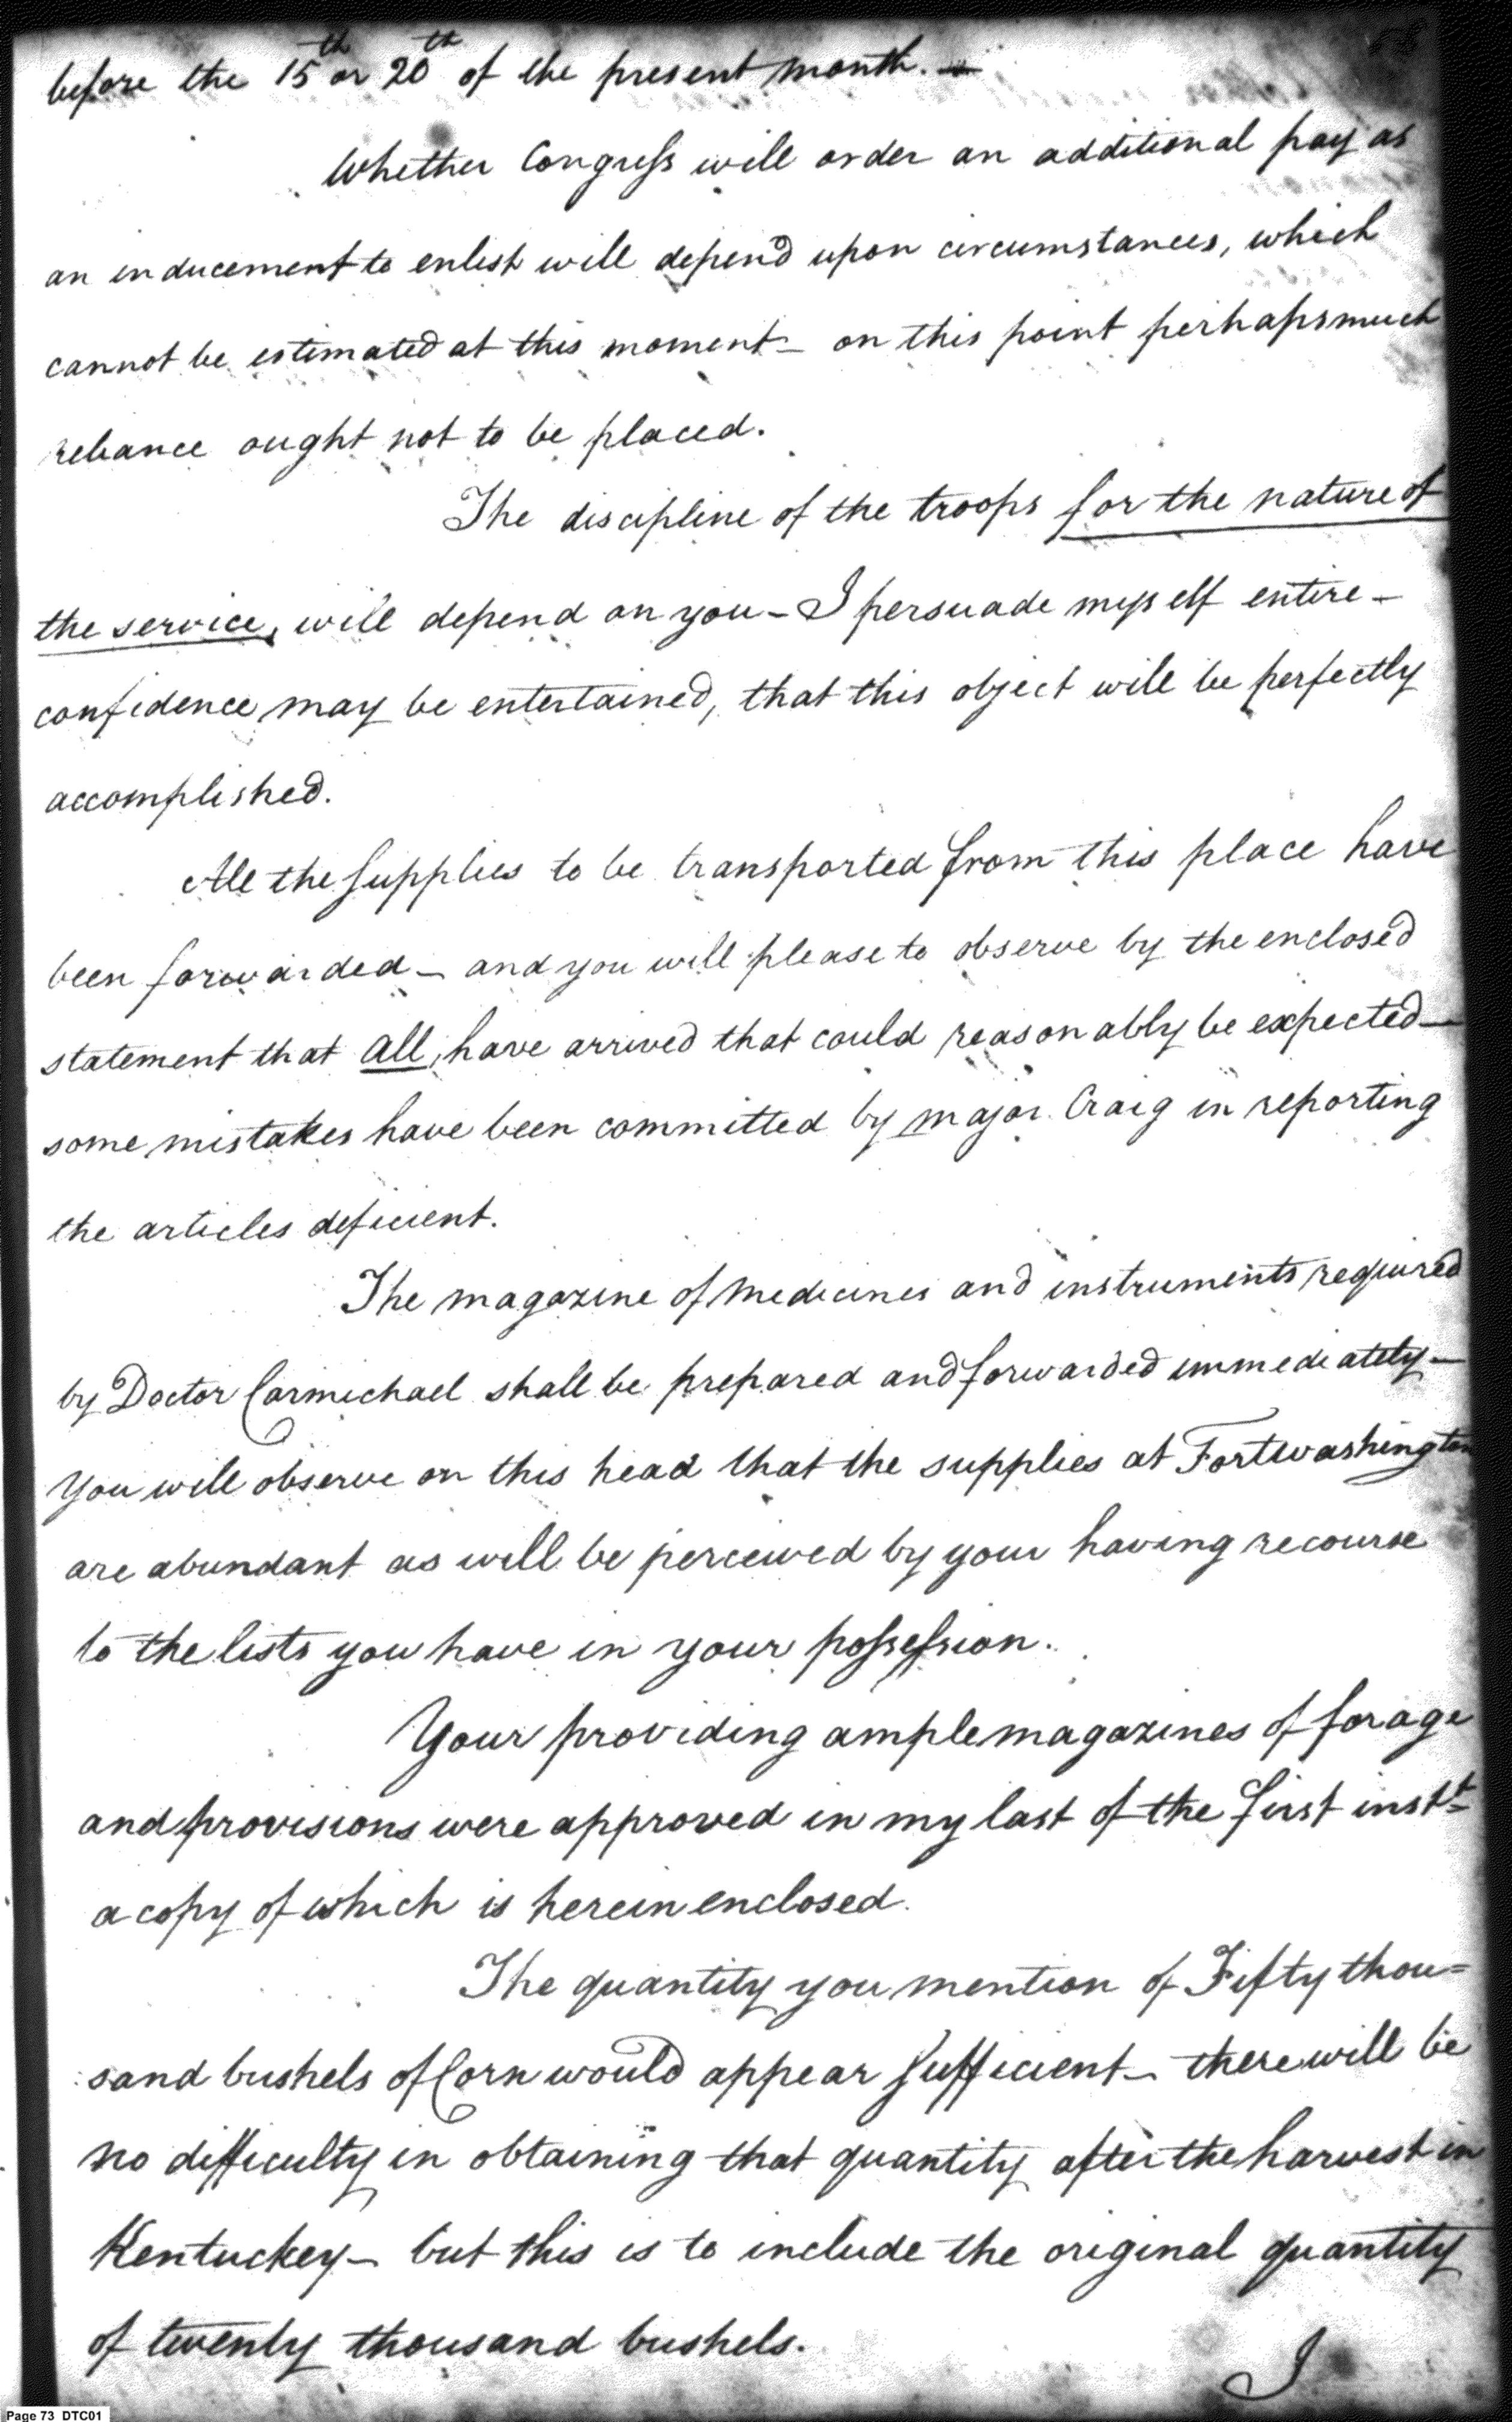 58
before the 15th or 20th of the present month. —
Whether Congress will order an additional pay as
an inducement to enlist will depend upon circumstances, which
cannot be estimated at this moment – on this point perhaps much
reliance ought not to be placed.
The discipline of the troops for the nature of
the service, will depend on you – I persuade myself entire –
confidence may be entertained, that this object will be perfectly
accomplished.
All the supplies to be transported from this place have
been forwarded – and you will please to observe by the enclosed
statement that all, have arrived that could reasonably be expected –
some mistakes have been committed by major Craig in reporting
the articles deficient.
The magazine of Medicines and instruments required
by Doctor Carmichael shall be prepared and forwarded immediately –
You will observe on this head that the supplies at Fort washington
are abundant as will be perceived by your having recourse
to the lists you have in your possession.
Your providing ample magazines of forage
and provisions were approved in my last of the first instt
a copy of which is herein enclosed.
The quantity you mention of Fifty thou=
sand bushels of Corn would appear sufficient – there will be
no difficulty in obtaining that quantity after the harvest in
Kentuckey – but this is to include the original quantity
of twenty thousand bushels.
I
Page 73 DTC01